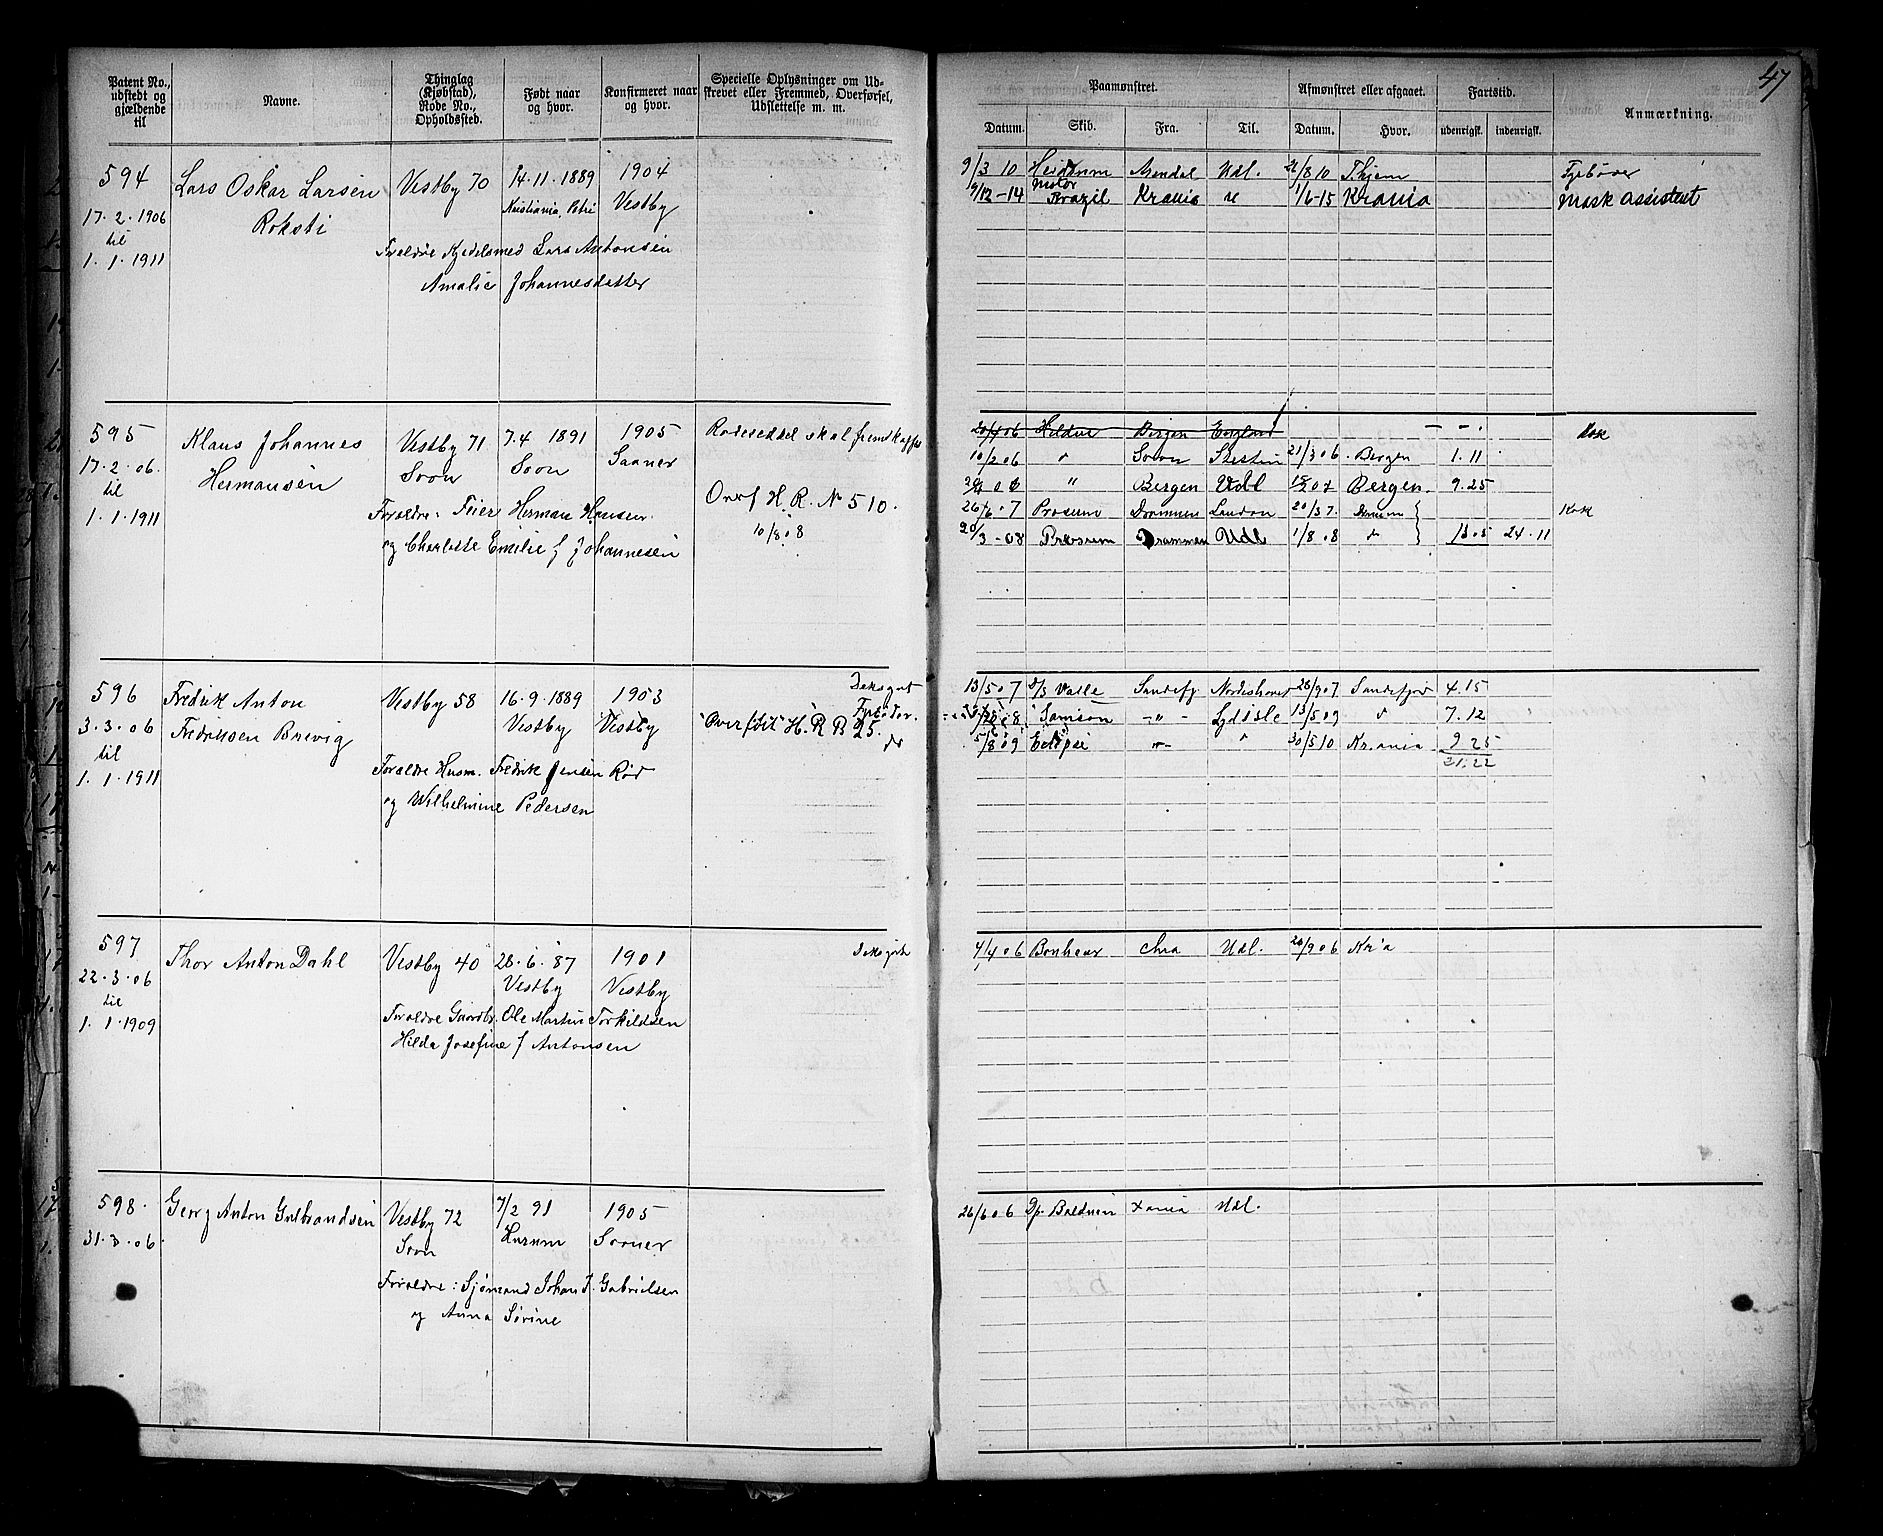 47
Patent No., udstedt og gjældende til
Navne.
Thinglag (Kjøbstad), Rode No., Opholdssted.
Født naar og hvor.
Konfirmeret naar og hvor.
Specielle Oplysninger om Udskrevet eller Fremmed, Overførsel, Udslettelse m. m.
Paamønstret.
Afmønstret eller afgaaet.
Fartstid.
Anmærkning.
Datum. Skib. Fra. Til. Datum. Hvor. udenrigsk. indenrigsk.
594 Lars Oskar Larsen Vestby 70 14.11.1889 1904
17.2.1906 Roksti Kristiania, Petri Vestby
til
1.1.1911
Forældre Kjedelsmed Lars Antonsen
Amalie Johannesdatter
9/3 10 Heidrum Arendal Udl. 21/8 10 Tkjem Fyrbøder
9/12-14 Motor Brazil Krania 1/6-15 Krania Mask assistent
595 Klaus Johannes Vestby 71 7.4 1891 1905 Rodeseddel skal fremskaffes
17.2.06. Hermansen Soon Soon Saaner
til
1.1.1911
Overf H.R. No 510.
10/8 08
Forældre: Feier Herman Hansen
og Charlotte Emilie f Johannesen
20/4 06 Hildur Bergen England - - . Kok
10/2 06 " Soon Stettin 21/3 06. Bergen 1.11
" Bergen Udl Bergen. 9.25
26/6.07 Prosum London 20/3 7. Kok
20/3-08 Prosum Drammen Udl 1/8 08 24 11
596 Fredrik Anton Vestby 58 16.9.1889 1903
3.3.06 Fredriksen Brevig Vestby Vestby Overført H.R B 25.
til
1.1.1911
Forældre Husm. Fredrik Jensen Rød
og Wilhelmine Pedersen
13/5 07 D/S Valle Sandefj 28/9 07 Sandefjord 4.15
Samson -"- 13/5 09 7.12
5/8 09 "- 30/5 10 Krania 9 25
21.22
597 Thor Anton Dahl Vestby 40 28.6.87 1901
22.3.06 Vestby Vestby
til
1.1.1909
Forældre Gaardbr. Ole Martin Torkildsen
Hilda Josefine f Antonsen
4/4 06 Bonheur Chra Udl. 20/9 06 Kr'a
598. Georg Anton Gulbrandsen Vestby 72 7/2 91 1905
31.3.06. Soon Hurum Sooner
Forældre: Sjømand Johan J. Gabrielsen
og Anna Sørine
26/6 06 Baldwin Xania Udl.